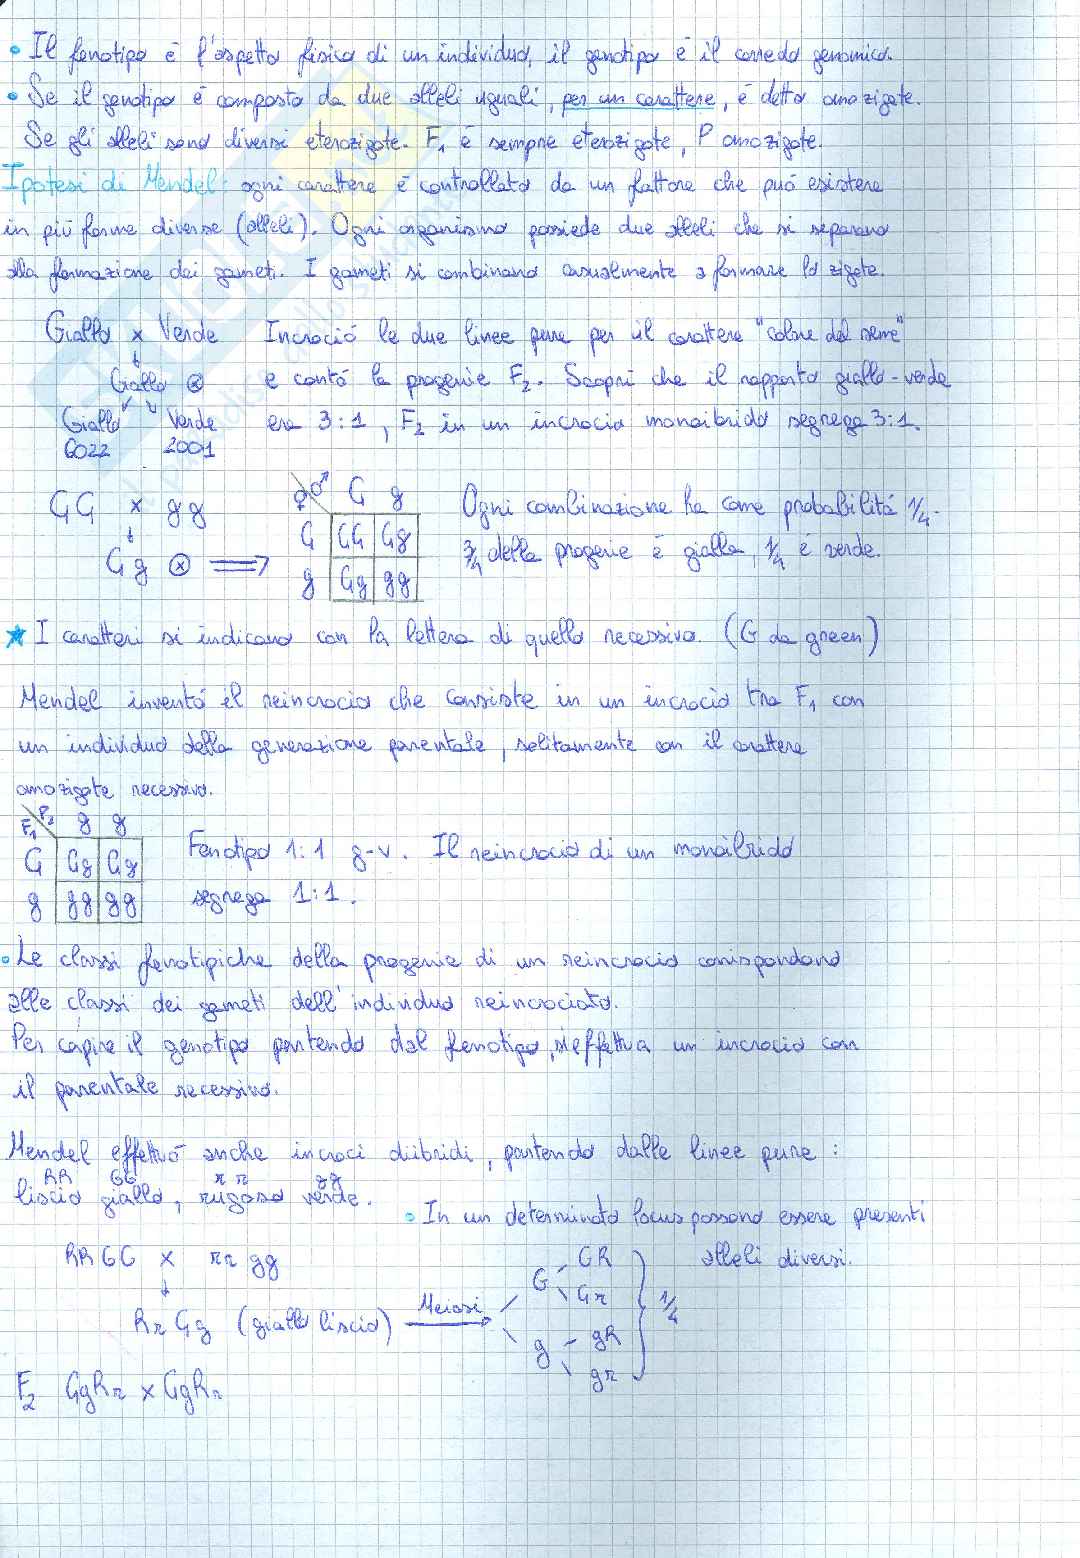 • Il fenotipo è l'aspetto fisico di un individuo, il genotipo è il corredo genomico.
• Se il genotipo è composto da due alleli uguali, per un carattere, è detto omozigote.
Se gli alleli sono diversi eterozigote. F1 è sempre eterozigote, P omozigote.
Ipotesi di Mendel: ogni carattere è controllato da un fattore che può esistere
in più forme diverse (alleli). Ogni organismo possiede due alleli che si separano
alla formazione dei gameti. I gameti si combinano casualmente a formare lo zigote.
Giallo x Verde Incrociò le due linee pure per il carattere "colore del seme"
↓
Giallo ⊗ e contò la progenie F2. Scoprì che il rapporto giallo-verde
Giallo Verde era 3:1, F2 in un incrocio monoibrido segrega 3:1.
6022 2001
♀ ♂ G g
GG x gg Ogni combinazione ha come probabilità 1/4.
↓
G GG Gg
Gg ⊗ ⇒ 3/4 della progenie è gialla, 1/4 è verde.
g Gg gg
★ I caratteri si indicano con la lettera di quello recessivo. (G da green)
Mendel inventò il reincrocio che consiste in un incrocio tra F1 con
un individuo della generazione parentale, solitamente con il carattere
omozigote recessivo.
F1 P2 g g
G Gg Gg Fenotipo 1:1 g-v. Il reincrocio di un monoibrido
g gg gg segrega 1:1.
• Le classi fenotipiche della progenie di un reincrocio corrispondono
alle classi dei gameti dell'individuo reincrociato.
Per capire il genotipo partendo dal fenotipo, si effettua un incrocio con
il parentale recessivo.
Mendel effettuò anche incroci diibridi, partendo dalle linee pure:
RR GG rr gg
liscio giallo, rugoso verde.
• In un determinato locus possono essere presenti
alleli diversi.
RRGG x rr gg
↓
Rr Gg (giallo liscio) Meiosi →
G GR
Gr
g gR
gr
1/4
F2 GgRr x GgRr